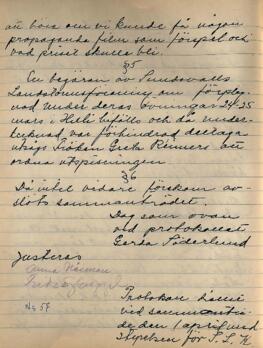 att höra om vi kunde få någon
propaganda film som förspel och
vad priset skulle bli.
§5
En begäran av Sundsvalls
Landstormsförening om förpläg-
nad under deras övningar 24-25
mars i Heli bifölls och då under-
tecknad var förhindrad deltaga
utsågs fröken Greta Rimers att
ordna utspisningen
§6
Då intet vidare förekom av-
slöts sammanträdet.
Dag som ovan
vid protokollet
Gerda Söderlund
Justeras
Anna
No 57
Protokoll
vid sammanträ-
de den 1 april med
Styrelsen för S. L. K.